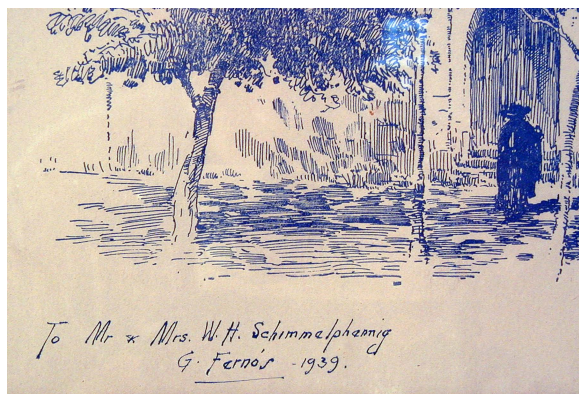 To Mr & Mrs. W. H. Schimmelphennig
G. Fernós - 1939.